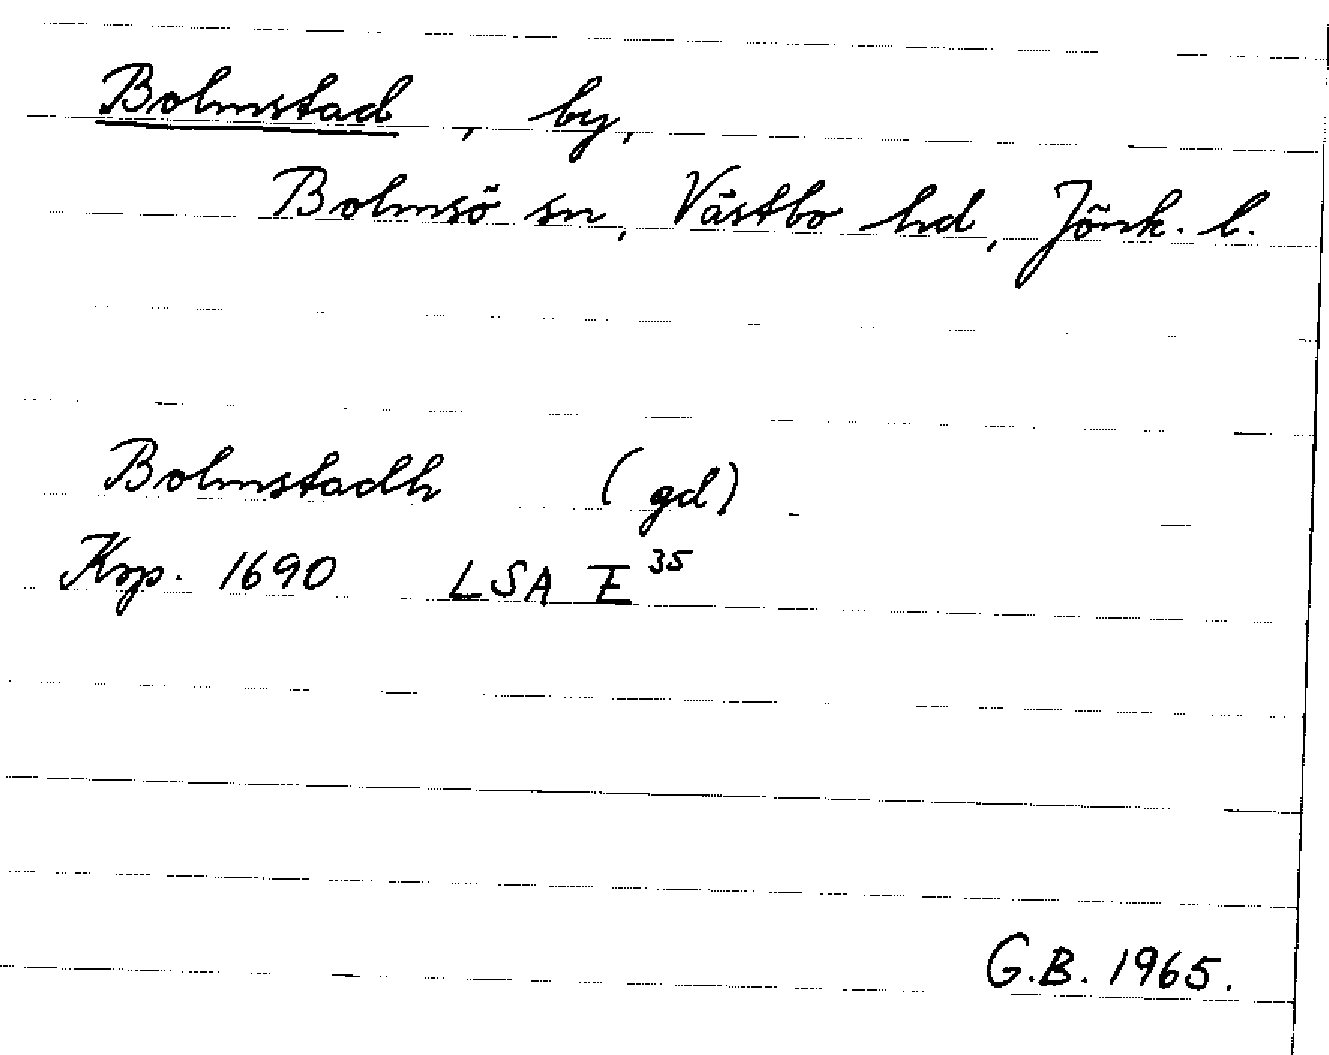 Bolmstad, by,
Bolmsö sn, Västbo hd, Jönk. l.
Bolmstadh (gd)
Krp. 1690 LSA E 35
G.B. 1965.